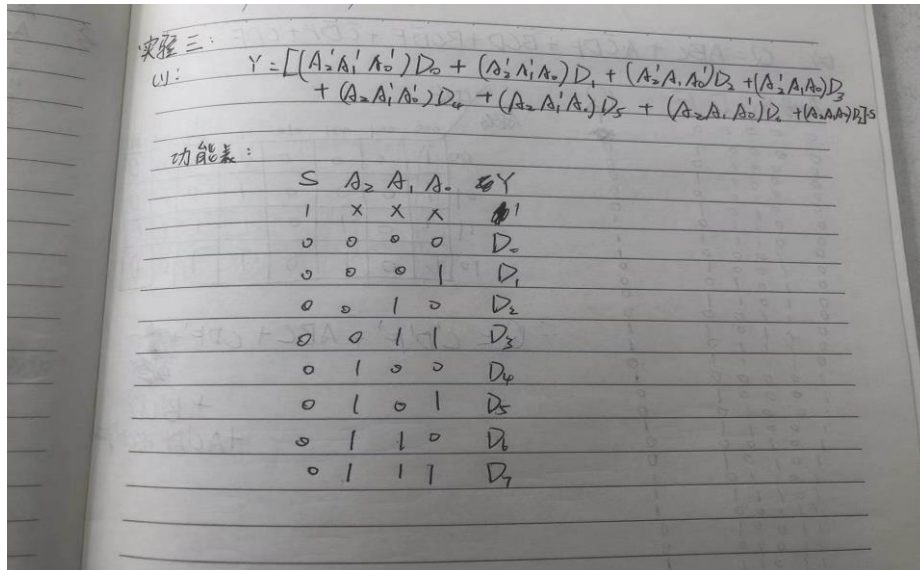 实验三:
(1): Y=[(A₂'A₁'A₀')D₀ + (A₂'A₁'A₀)D₁ + (A₂'A₁A₀')D₂ + (A₂'A₁A₀)D₃
+ (A₂A₁'A₀')D₄ + (A₂A₁'A₀)D₅ + (A₂A₁A₀')D₆ + (A₂A₁A₀)D₇]·S
功能表:
S A₂ A₁ A₀ Y
1 × × × 1
0 0 0 0 D₀
0 0 0 1 D₁
0 0 1 0 D₂
0 0 1 1 D₃
0 1 0 0 D₄
0 1 0 1 D₅
0 1 1 0 D₆
0 1 1 1 D₇